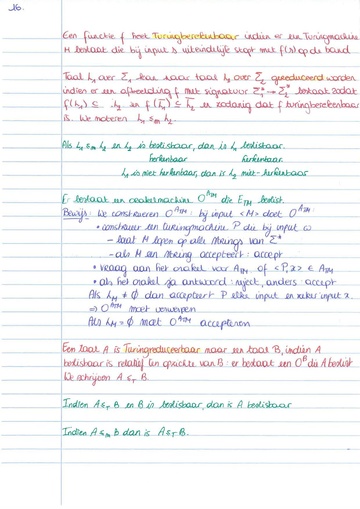 26.
Een functie f heet Turingberekenbaar indien er een Turingmachine
M bestaat die bij input s uiteindelijk stopt met f(s) op de band.
Taal L₁ over Σ₁ kan naar taal L₂ over Σ₂ gereduceerd worden
indien er een afbeelding f met signatuur Σ₁* → Σ₂* bestaat zodat
f(L₁) ⊆ L₂ en f(L̄₁) ⊆ L̄₂ en zodanig dat f turingberekenbaar
is. We noteren L₁ ≤m L₂.
Als L₁ ≤m L₂ en L₂ is beslisbaar, dan is L₁ beslisbaar.
herkenbaar herkenbaar.
L₁ is niet herkenbaar, dan is L₂ niet-herkenbaar
Er bestaat een orakelmachine O^ATM die E_TM beslist.
Bewijs: We construeren O^ATM: bij input <M> doet O^ATM:
• construeer een turingmachine P die bij input w
– laat M lopen op alle strings van Σ*
– als M een string accepteert: accept
• vraag aan het orakel voor A_TM of <P,x> ∈ A_TM
• als het orakel ja antwoord: reject, anders: accept
Als L_M ≠ ∅ dan accepteert P elke input en zeker input x.
⇒ O^ATM moet verwerpen
Als L_M = ∅ moet O^ATM accepteren
Een taal A is Turingreduceerbaar naar een taal B, indien A
beslisbaar is relatief ten opzichte van B: er bestaat een O^B die A beslist
We schrijven A ≤T B.
Indien A ≤T B en B is beslisbaar, dan is A beslisbaar
Indien A ≤m B dan is A ≤T B.